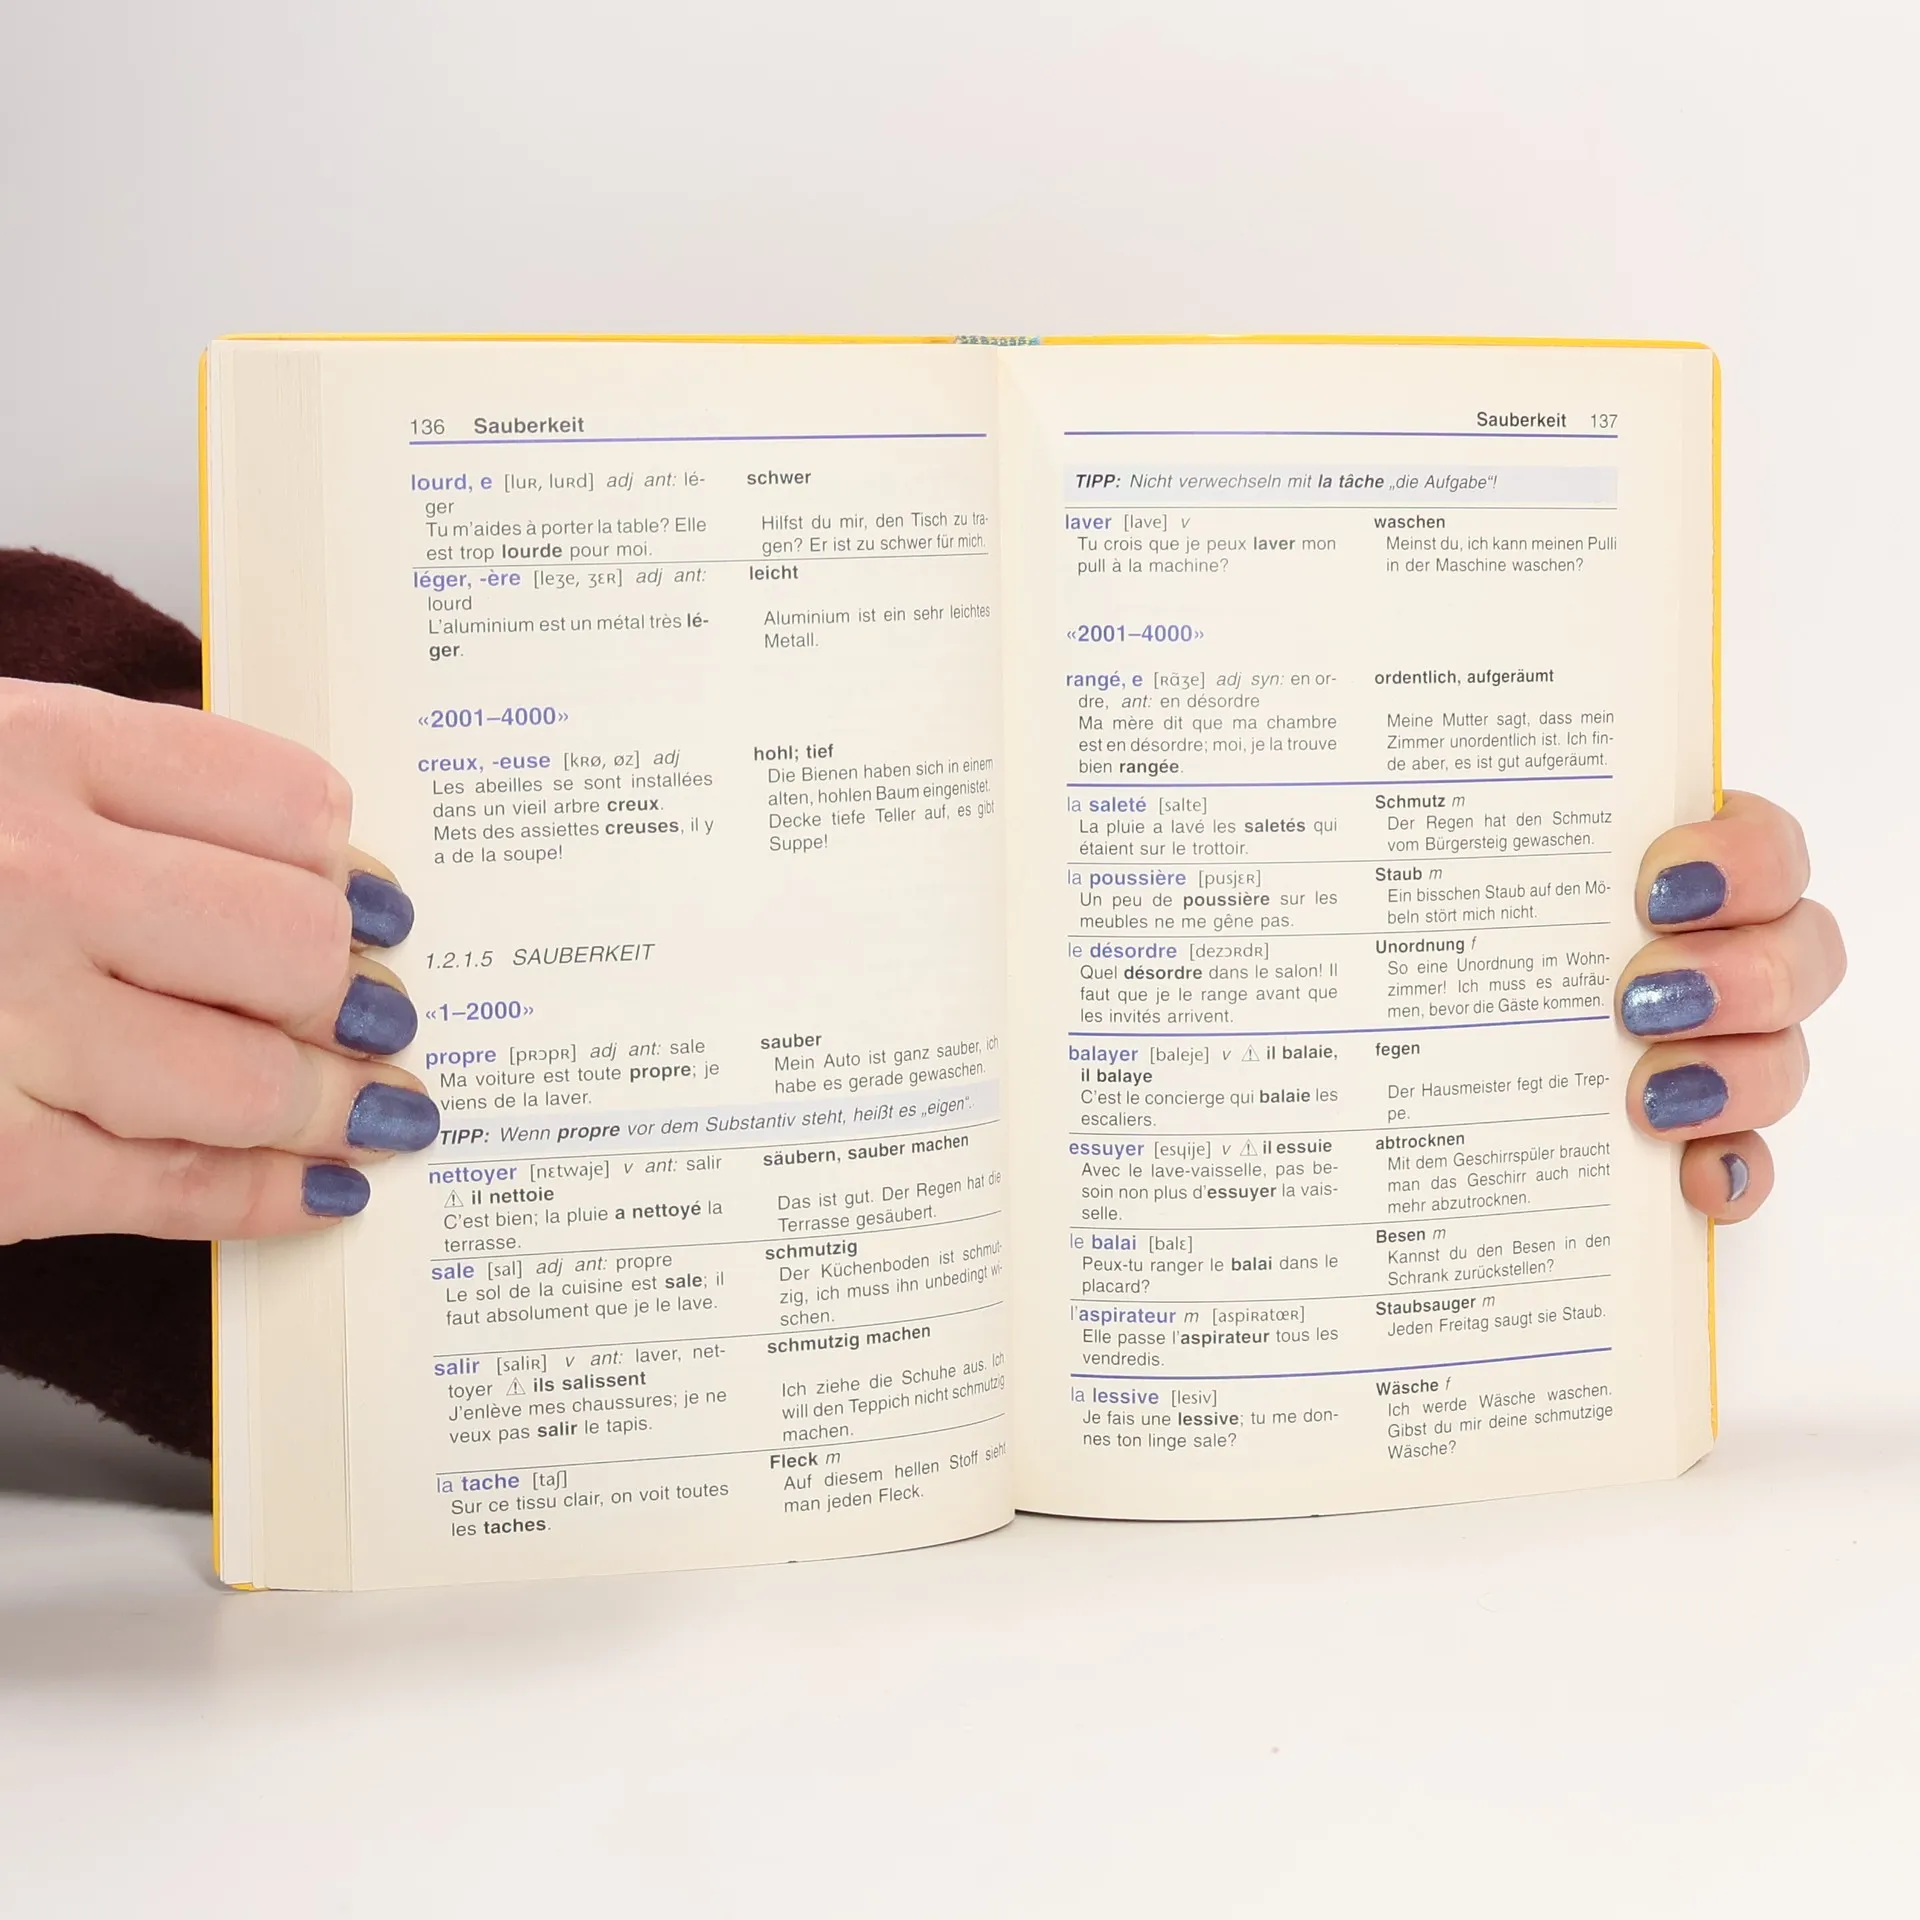 136 Sauberkeit
lourd, e [luʀ, luʀd] adj ant: lé-
ger
Tu m'aides à porter la table? Elle
est trop lourde pour moi.
schwer
Hilfst du mir, den Tisch zu tra-
gen? Er ist zu schwer für mich.
léger, -ère [leʒe, ʒɛʀ] adj ant:
lourd
L'aluminium est un métal très lé-
ger.
leicht
Aluminium ist ein sehr leichtes
Metall.
«2001–4000»
creux, -euse [kʀø, øz] adj
Les abeilles se sont installées
dans un vieil arbre creux.
Mets des assiettes creuses, il y
a de la soupe!
hohl; tief
Die Bienen haben sich in einem
alten, hohlen Baum eingenistet.
Decke tiefe Teller auf, es gibt
Suppe!
1.2.1.5 SAUBERKEIT
«1–2000»
propre [pʀɔpʀ] adj ant: sale
Ma voiture est toute propre; je
viens de la laver.
sauber
Mein Auto ist ganz sauber, ich
habe es gerade gewaschen.
TIPP: Wenn propre vor dem Substantiv steht, heißt es „eigen“.
nettoyer [nɛtwaje] v ant: salir
⚠ il nettoie
C'est bien; la pluie a nettoyé la
terrasse.
säubern, sauber machen
Das ist gut. Der Regen hat die
Terrasse gesäubert.
sale [sal] adj ant: propre
Le sol de la cuisine est sale; il
faut absolument que je le lave.
schmutzig
Der Küchenboden ist schmut-
zig, ich muss ihn unbedingt wi-
schen.
salir [saliʀ] v ant: laver, net-
toyer ⚠ ils salissent
J'enlève mes chaussures; je ne
veux pas salir le tapis.
schmutzig machen
Ich ziehe die Schuhe aus. Ich
will den Teppich nicht schmutzig
machen.
la tache [taʃ]
Sur ce tissu clair, on voit toutes
les taches.
Fleck m
Auf diesem hellen Stoff sieht
man jeden Fleck.
Sauberkeit 137
TIPP: Nicht verwechseln mit la tâche „die Aufgabe“!
laver [lave] v
Tu crois que je peux laver mon
pull à la machine?
waschen
Meinst du, ich kann meinen Pulli
in der Maschine waschen?
«2001–4000»
rangé, e [ʀɑ̃ʒe] adj syn: en or-
dre, ant: en désordre
Ma mère dit que ma chambre
est en désordre; moi, je la trouve
bien rangée.
ordentlich, aufgeräumt
Meine Mutter sagt, dass mein
Zimmer unordentlich ist. Ich fin-
de aber, es ist gut aufgeräumt.
la saleté [salte]
La pluie a lavé les saletés qui
étaient sur le trottoir.
Schmutz m
Der Regen hat den Schmutz
vom Bürgersteig gewaschen.
la poussière [pusjɛʀ]
Un peu de poussière sur les
meubles ne me gêne pas.
Staub m
Ein bisschen Staub auf den Mö-
beln stört mich nicht.
le désordre [dezɔʀdʀ]
Quel désordre dans le salon! Il
faut que je le range avant que
les invités arrivent.
Unordnung f
So eine Unordnung im Wohn-
zimmer! Ich muss es aufräu-
men, bevor die Gäste kommen.
balayer [baleje] v ⚠ il balaie,
il balaye
C'est le concierge qui balaie les
escaliers.
fegen
Der Hausmeister fegt die Trep-
pe.
essuyer [esɥije] v ⚠ il essuie
Avec le lave-vaisselle, pas be-
soin non plus d'essuyer la vais-
selle.
abtrocknen
Mit dem Geschirrspüler braucht
man das Geschirr auch nicht
mehr abzutrocknen.
le balai [balɛ]
Peux-tu ranger le balai dans le
placard?
Besen m
Kannst du den Besen in den
Schrank zurückstellen?
l'aspirateur m [aspiʀatœʀ]
Elle passe l'aspirateur tous les
vendredis.
Staubsauger m
Jeden Freitag saugt sie Staub.
la lessive [lesiv]
Je fais une lessive; tu me don-
nes ton linge sale?
Wäsche f
Ich werde Wäsche waschen.
Gibst du mir deine schmutzige
Wäsche?